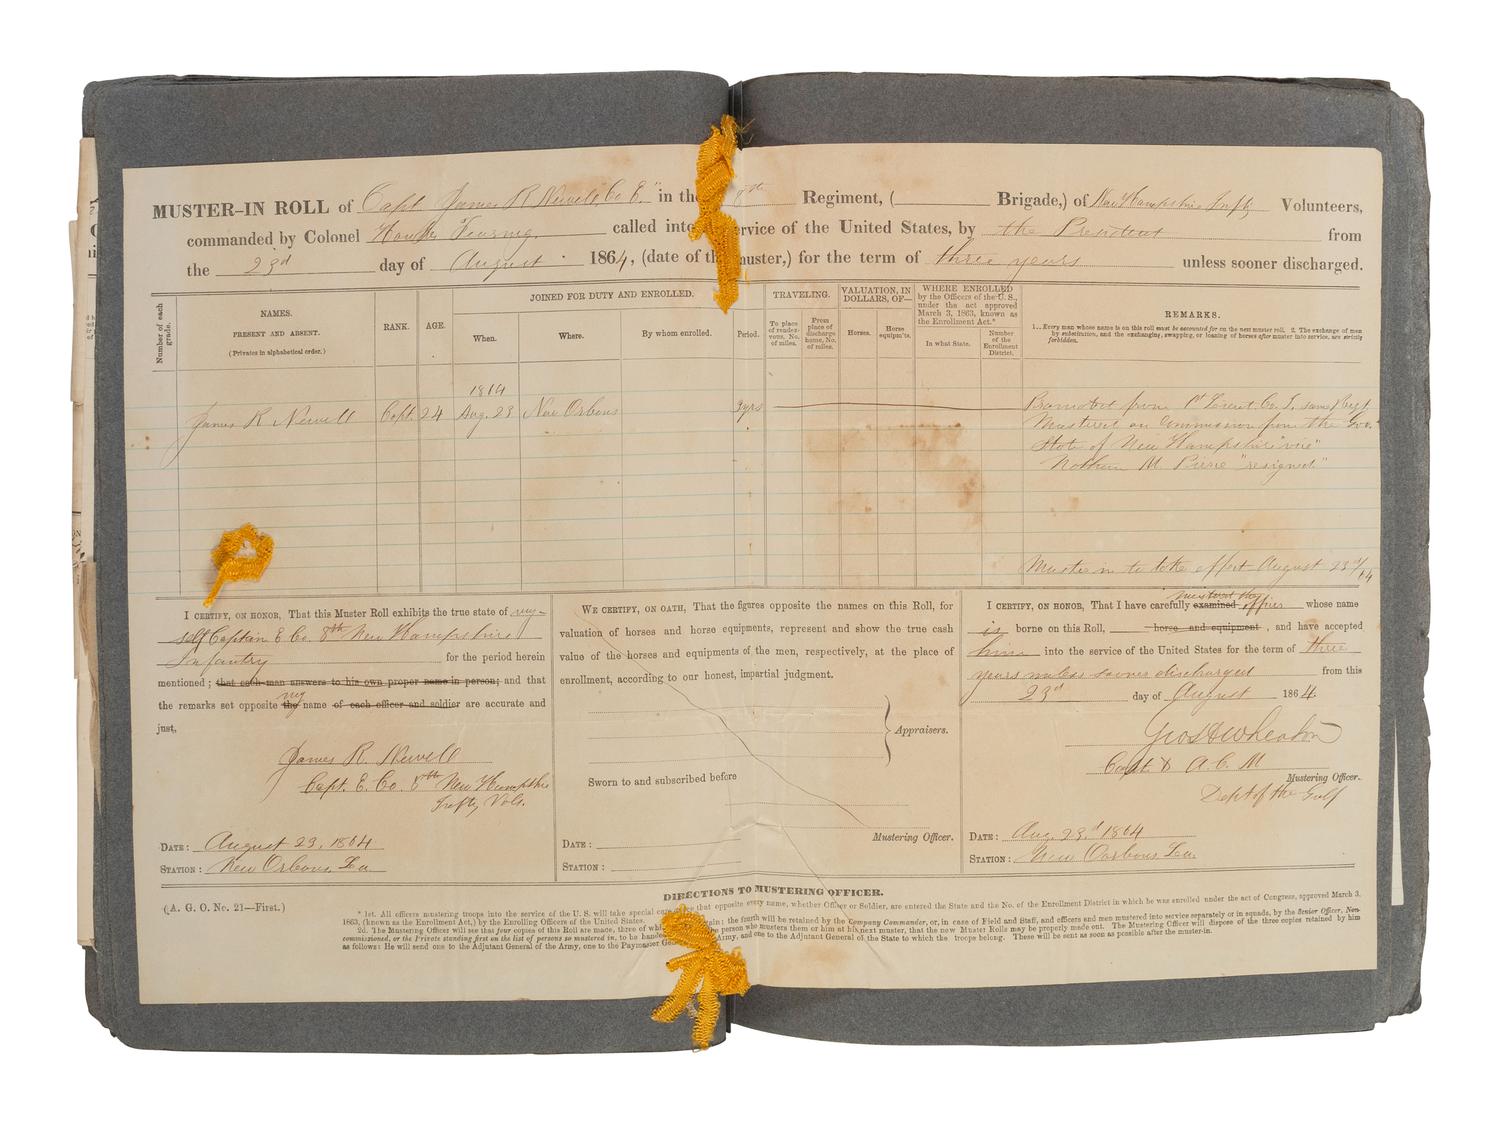 MUSTER-IN ROLL of Capt James R Newell, Co E. in the 8th Regiment, ( Brigade,) of New Hampshire Infty Volunteers,
commanded by Colonel Hawkes Fearing called into service of the United States, by the President from
the 23d day of August 1864, (date of this muster,) for the term of three years unless sooner discharged.
Number of each grade.
NAMES.
PRESENT AND ABSENT.
(Privates in alphabetical order.)
RANK.
AGE.
JOINED FOR DUTY AND ENROLLED.
When.
Where.
By whom enrolled.
Period.
TRAVELING.
To place of rendezvous, No. of miles.
From place of discharge home, No. of miles.
VALUATION, IN DOLLARS, OF—
Horses.
Horse equipm'ts.
WHERE ENROLLED
by the Officers of the U. S., under the act approved March 3, 1863, known as the Enrollment Act.*
In what State.
Number of the Enrollment District.
REMARKS.
1..Every man whose name is on this roll must be accounted for on the next muster roll. 2. The exchange of men
by substitution, and the exchanging, swapping, or loaning of horses after muster into service, are strictly
forbidden.
1864
James R Newell Capt. 24 Aug. 23 New Orleans 3yrs Promoted from 1st Lieut. Co. I. same Regt.
Mustered on commission from the Gov.
State of New Hampshire "vice"
Nathan M Pierce "resigned"
Muster in to take effect August 23d/64
I CERTIFY, ON HONOR, That this Muster Roll exhibits the true state of my-
self Captain E Co. 8th New Hampshire
Infantry for the period herein
mentioned; that each man answers to his own proper name in person; and that
my
the remarks set opposite the name of each officer and soldier are accurate and
just,
James R. Newell
Capt. E. Co. 8th New Hampshire
Infty Vols.
DATE: August 23, 1864
STATION: New Orleans, La.
WE CERTIFY, ON OATH, That the figures opposite the names on this Roll, for
valuation of horses and horse equipments, represent and show the true cash
value of the horses and equipments of the men, respectively, at the place of
enrollment, according to our honest, impartial judgment.
Appraisers.
Sworn to and subscribed before
Mustering Officer.
DATE:
STATION:
mustered the
I CERTIFY, ON HONOR, That I have carefully examined officer whose name
is borne on this Roll, horse and equipment, and have accepted
him into the service of the United States for the term of three
years unless sooner discharged from this
23d day of August 1864
Capt. & A. C. M
Mustering Officer.
Dept of the Gulf
DATE: Aug. 23d 1864
STATION: New Orleans, La.
(A. G. O. No. 21—First.)
DIRECTIONS TO MUSTERING OFFICER.
* 1st. All officers mustering troops into the service of the U. S. will take special care that opposite every name, whether Officer or Soldier, are entered the State and the No. of the Enrollment District in which he was enrolled under the act of Congress, approved March 3.
1863, (known as the Enrollment Act,) by the Enrolling Officers of the United States.
2d. The Mustering Officer will see that four copies of this Roll are made, three of which : the fourth will be retained by the Company Commander, or, in case of Field and Staff, and officers and men mustered into service separately or in squads, by the Senior Officer, Non-
commissioned, or the Private standing first on the list of persons so mustered in, to be handed the person who musters them or him at his next muster, that the new Muster Rolls may be properly made out. The Mustering Officer will dispose of the three copies retained by him
as follows: He will send one to the Adjutant General of the Army, one to the Paymaster Army, and one to the Adjutant General of the State to which the troops belong. These will be sent as soon as possible after the muster-in.